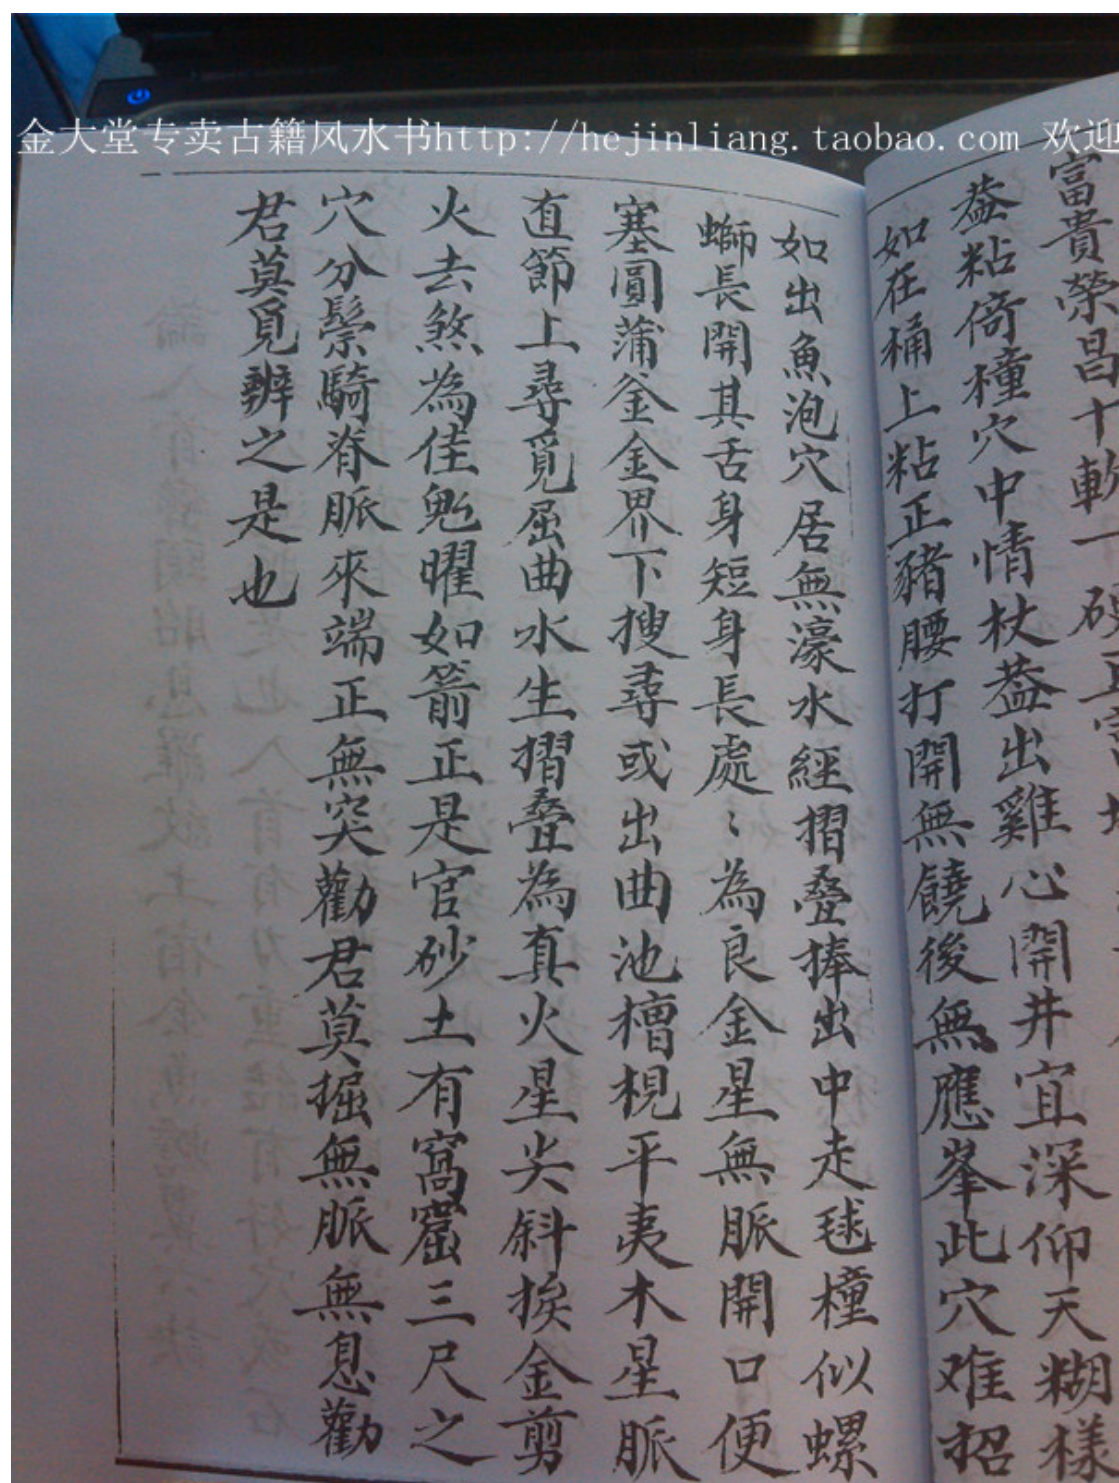 金大堂专卖古籍风水书http://hejinliang.taobao.com 欢迎
富貴榮昌十軟一
葢粘倚橦穴中情杖葢出雞心開井宜深仰天糊樣
如在桶上粘正豬腰打開無饒後無應峯此穴难招
如出魚泡穴居無濠水經摺叠捧出中走毬橦似螺
螄長開其舌身短身長處〻為良金星無脈開口便
塞圓蒲釜金界下搜尋或出曲池槽梘平夷木星脈
直節上尋覓屈曲水生摺叠為真火星尖斜挨金剪
火去煞為佳鬼曜如箭正是官砂土有窩窟三尺之
穴分鬃騎脊脈來端正無突勸君莫掘無脈無息勸
君莫覓辨之是也